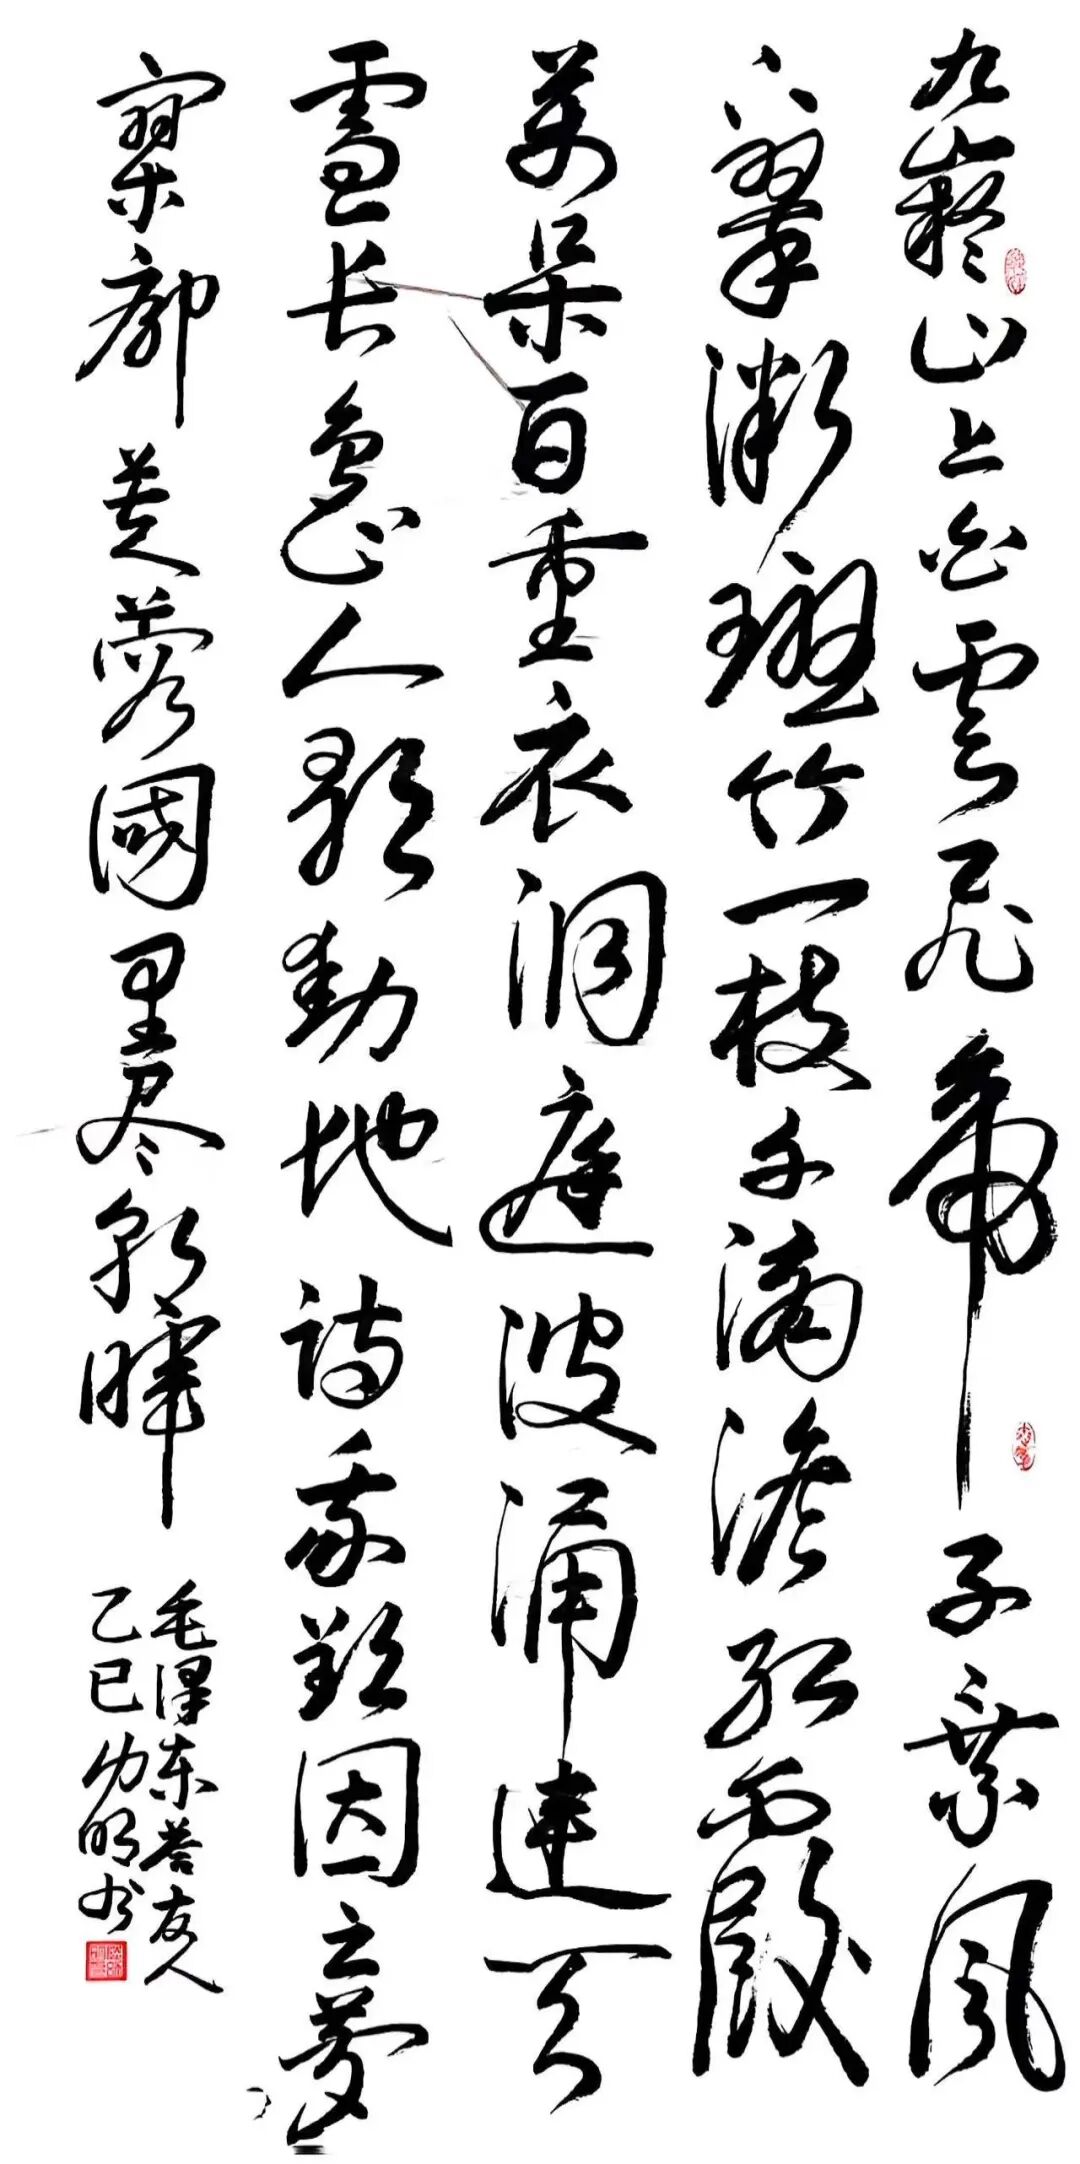 九嶷山上白雲飛帝子乘風
下翠微斑竹一枝千滴淚紅霞
萬朵百重衣洞庭波涌連天
雪长島人歌動地诗我欲因之夢
寥廓芙蓉國里尽朝暉
毛泽东答友人
乙巳幼明书